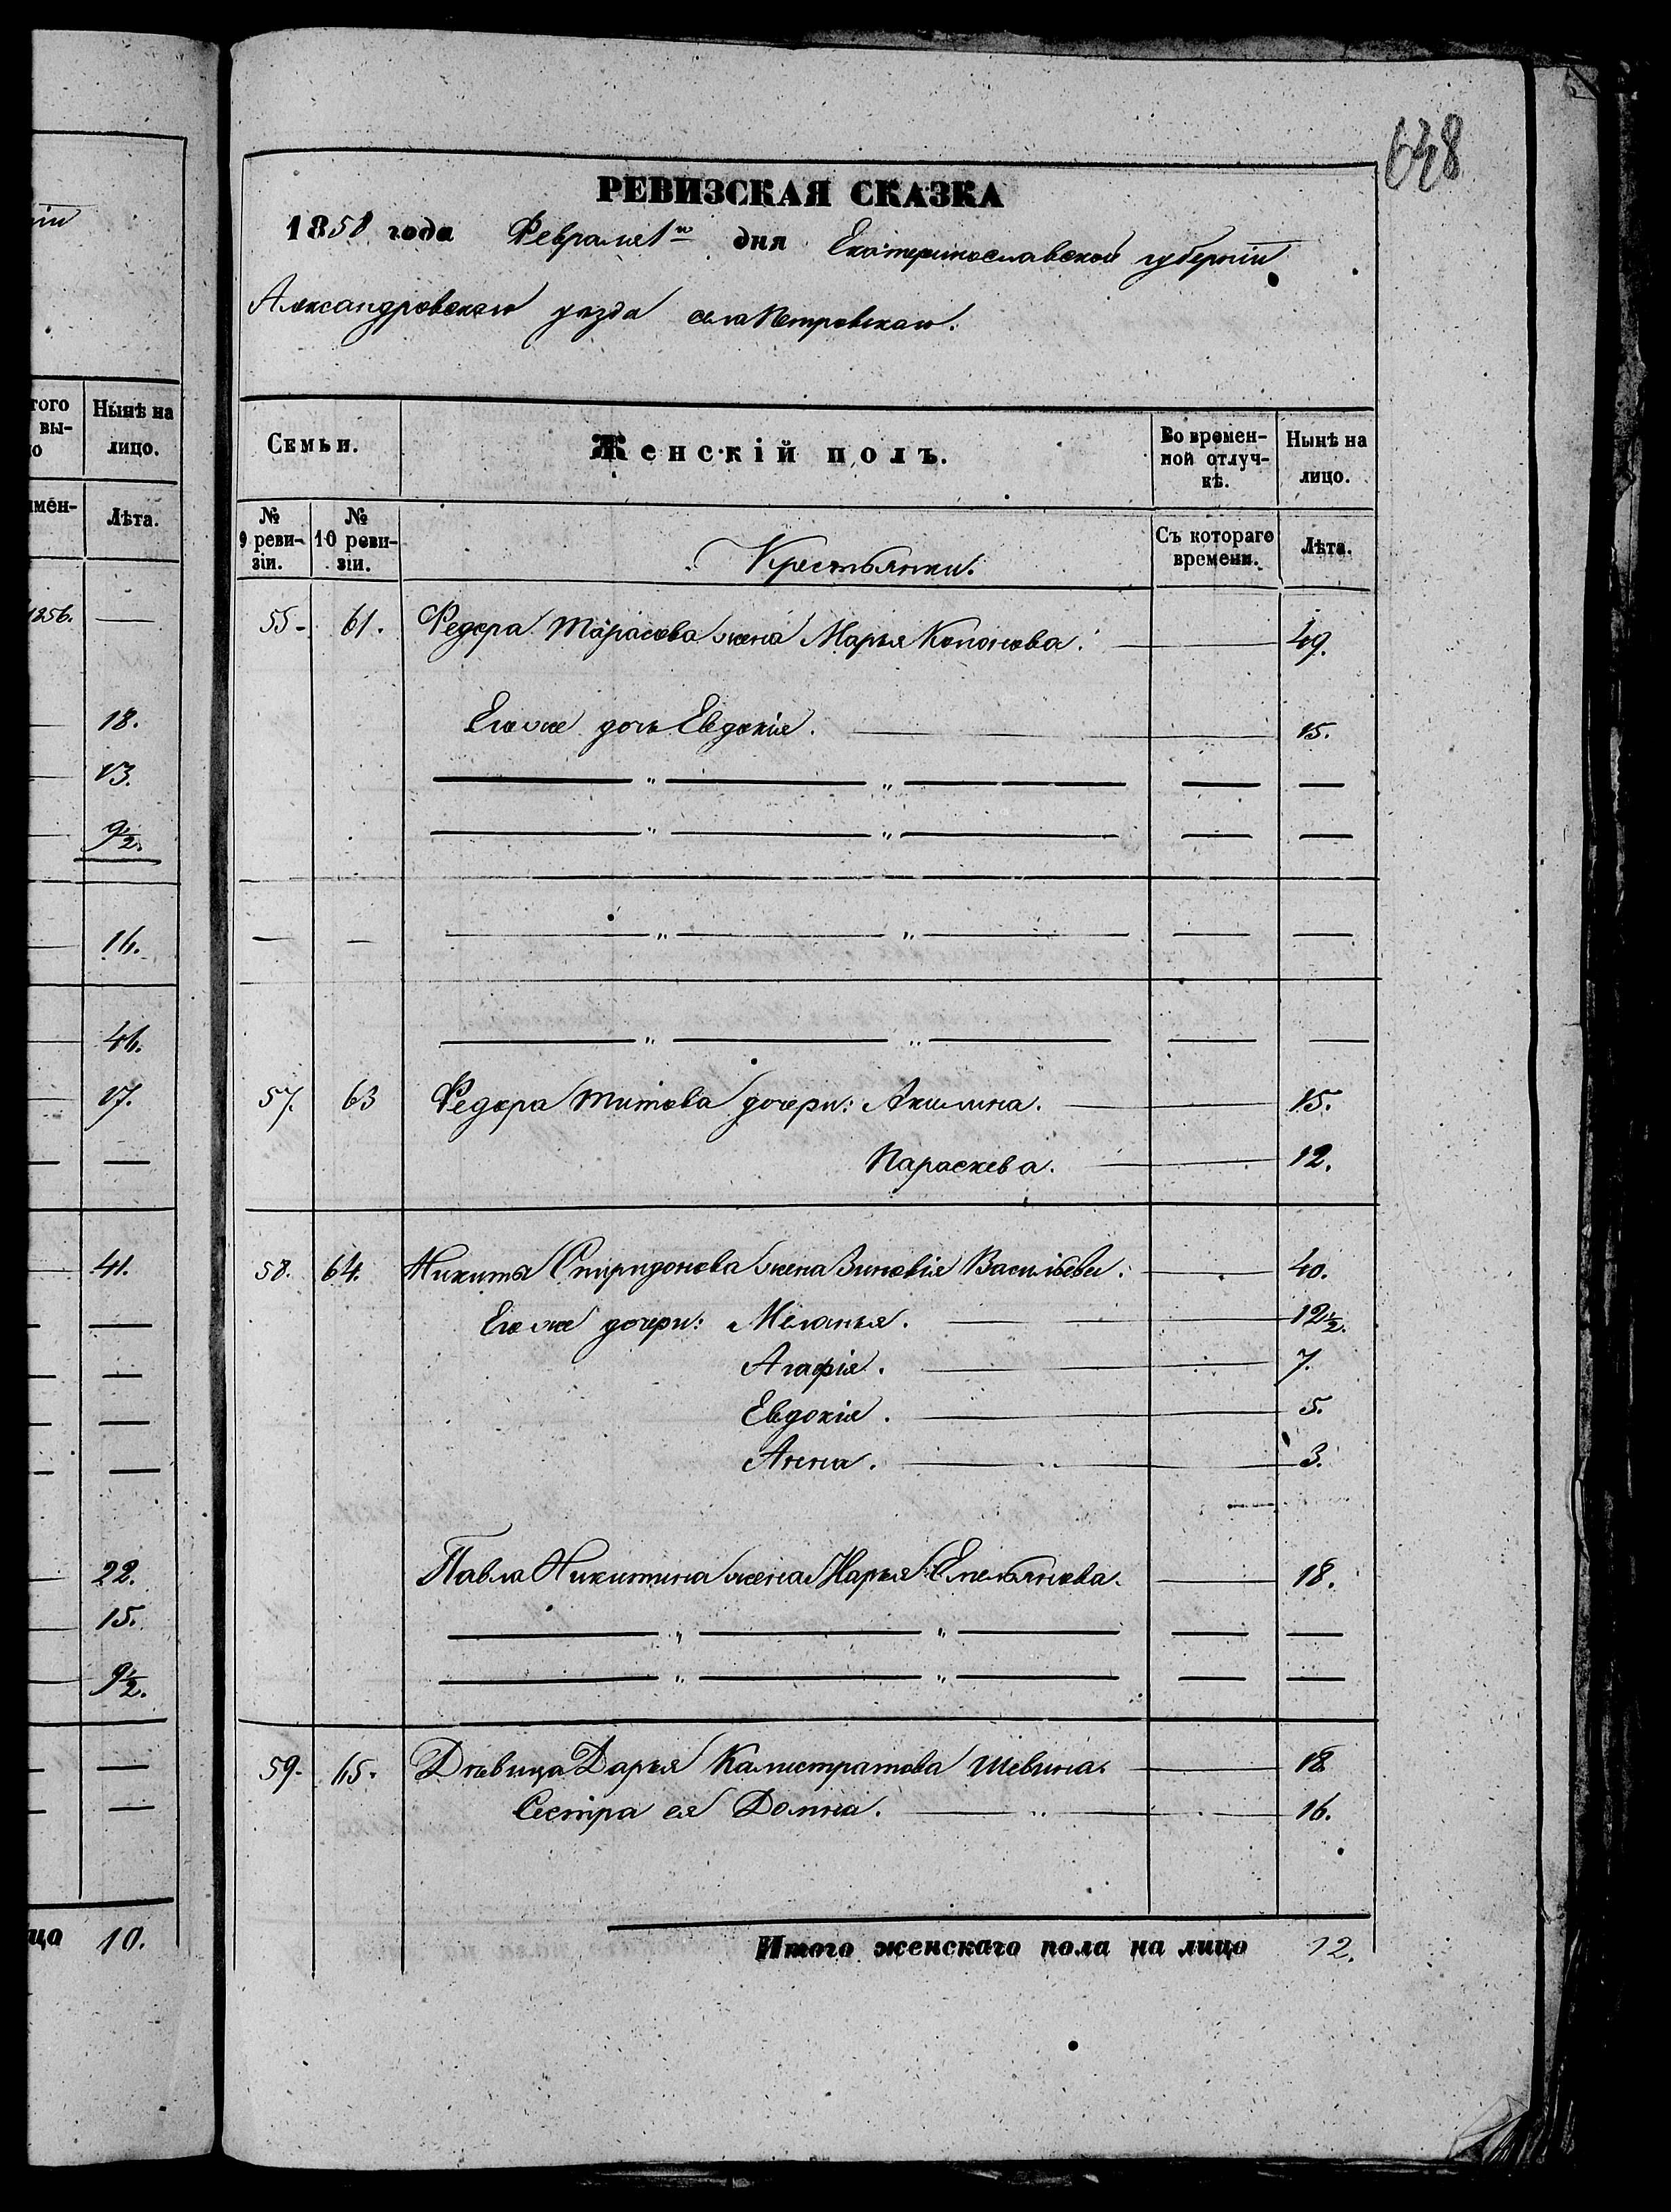 ніи
того
вы-
о
Нынѣ на
лицо.
имен-
Лѣта.
1856. —
18.
13.
9½.
16.
46.
17.
—
41.
—
—
—
—
22.
15.
9½.
—
—
цо 10.
648
РЕВИЗСКАЯ СКАЗКА
1858 года Февраля 1го дня Екатеринославской губерніи
Александровскаго уѣзда села Петровскаго.
Семьи.
Женскій полъ.
Во времен-
ной отлуч-
кѣ.
Нынѣ на
лицо.
№
9 реви-
зіи.
№
10 реви-
зіи.
Крестьянки.
Съ котораго
времени.
Лѣта.
55. 61. Федора Тарасова жена Марья Кононова. — 49.
Его же дочь Евдокія. — 15.
— „ — „ — — —
— „ — „ — — —
— — — „ — „ — — —
— „ — „ — — —
57. 63 Федора Титова дочери: Акилина. — 15.
Параскева. — 12.
58. 64. Никиты Спиридонова жена Зиновія Васильева. — 40.
Его же дочери: Меланья. — 12½.
Агафія. — 7.
Евдокія. — 5.
Анна. — 3.
Павла Никитина жена Марья Емельянова. — 18.
— „ — „ — — —
— „ — „ — — —
59. 65. Дѣвица Дарья Калистратова — 18.
Сестра ея Домна. — 16.
Итого женскаго пола на лицо 12.